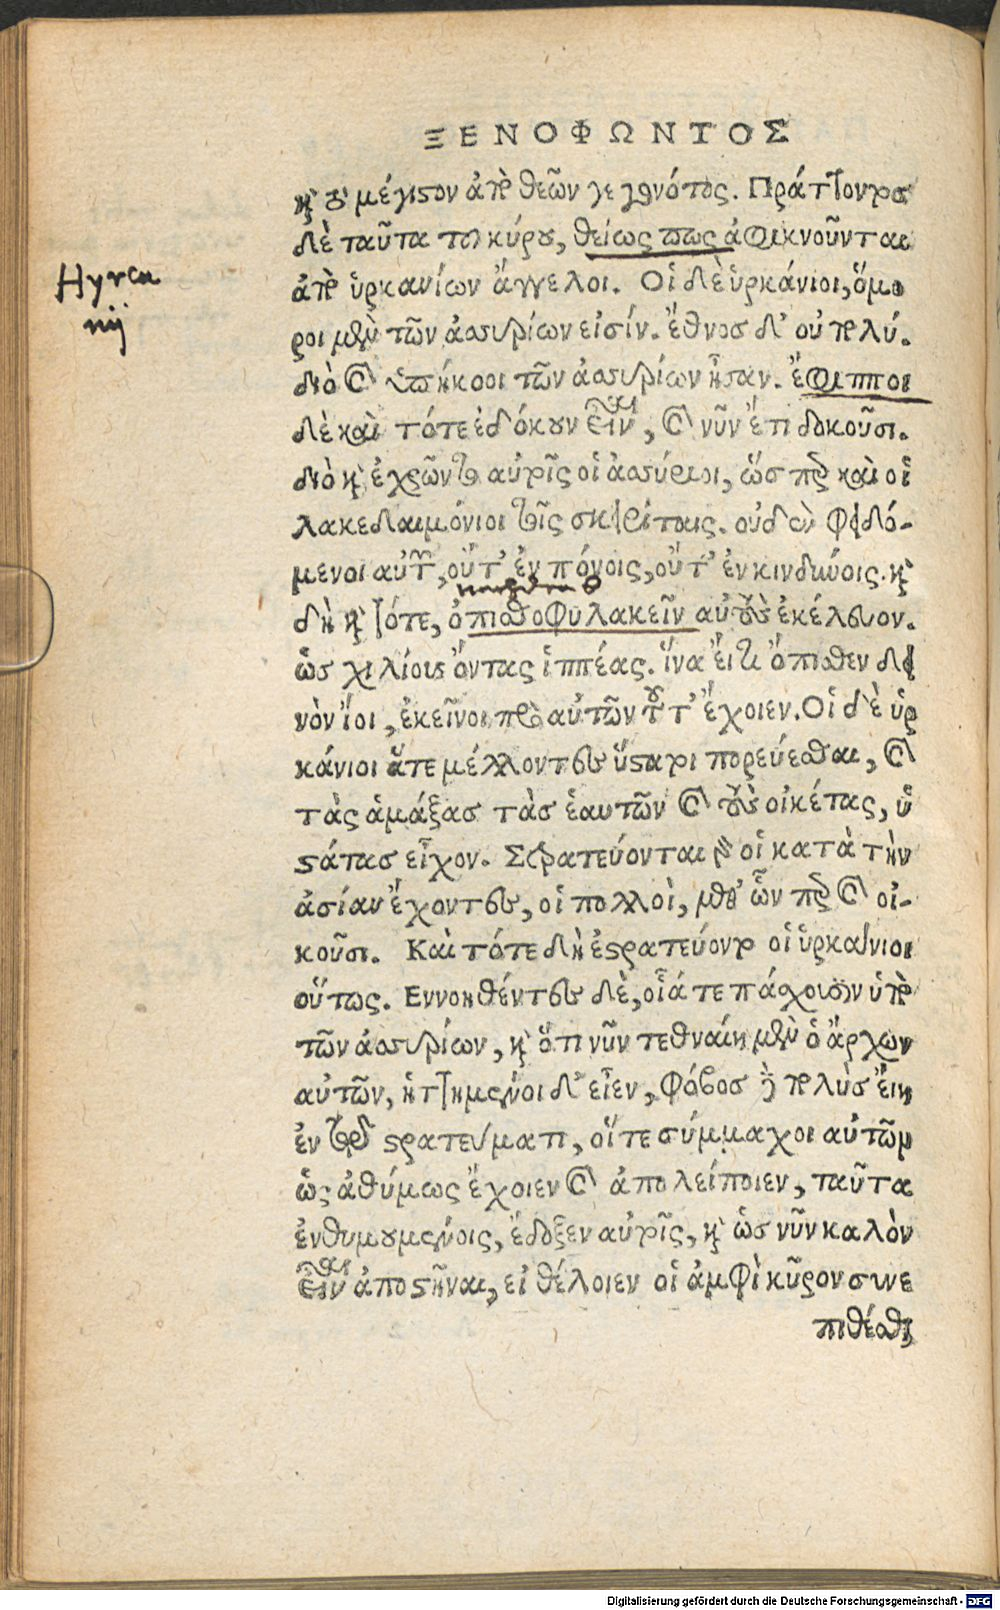 ΞΕΝΟΦΩΝΤΟΣ
καὶ τοῦ μέγιστον ἀπὸ θεῶν γεγονότος. Πράττοντος
δὲ ταῦτα τοῦ κύρου, θείως πως ἀφικνοῦνται
ἀπὸ ὑρκανίων ἄγγελοι. Οἱ δὲ ὑρκάνιοι, ὅμο
ροι μὲν τῶν ἀσσυρίων εἰσίν. ἔθνος δ' οὐ πολύ.
διὸ καὶ ὑπήκοοι τῶν ἀσσυρίων ἦσαν. ἔφιπποι
δὲ καὶ τότε ἐδόκουν εἶναι, καὶ νῦν ἔτι δοκοῦσι.
διὸ καὶ ἐχρῶντο αὐτοῖς οἱ ἀσσύριοι, ὥσπερ καὶ οἱ
λακεδαιμόνιοι τοῖς σκιρίταις. οὐδὲν φειδό-
μενοι αὐτῶν, οὔτ' ἐν πόνοις, οὔτ' ἐν κινδύνοις. καὶ
δὴ καὶ τότε, ὀπισθοφυλακεῖν αὐτοὺς ἐκέλευον.
ὡς χιλίους ὄντας ἱππέας. ἵνα εἴ τι ὄπισθεν δει
νὸν ἴοι, ἐκεῖνοι πρὸ αὐτῶν τοῦτ' ἔχοιεν. Οἱ δὲ ὑρ
κάνιοι ἅτε μέλλοντες ὕστατοι πορεύεσθαι, καὶ
τὰς ἁμάξας τὰς ἑαυτῶν καὶ τοὺς οἰκέτας, ὑ
στάτας εἶχον. Στρατεύονται γὰρ οἱ κατὰ τὴν
ἀσίαν ἔχοντες, οἱ πολλοὶ, μεθ' ὧνπερ καὶ οἰ-
κοῦσι. Καὶ τότε δὴ ἐστρατεύοντο οἱ ὑρκάνιοι
οὕτως. Εννοηθέντες δὲ, οἷά τε πάσχουσιν ὑπὸ
τῶν ἀσσυρίων, καὶ ὅτι νῦν τεθναίη μὲν ὁ ἄρχων
αὐτῶν, ἡττημένοι δ' εἶεν, φόβος δὲ πολὺς εἴη
ἐν τῷ στρατεύματι, οἵ τε σύμμαχοι αὐτῶν
ὡς ἀθύμως ἔχοιεν καὶ ἀπολείποιεν, ταῦτα
ἐνθυμουμένοις, ἔδοξεν αὐτοῖς, καὶ ὡς νῦν καλὸν
εἶναι ἀποστῆναι, εἰ θέλοιεν οἱ ἀμφὶ κῦρον συνε
πιθέσθαι
Hyrca
nij
Digitalisierung gefördert durch die Deutsche Forschungsgemeinschaft - DFG